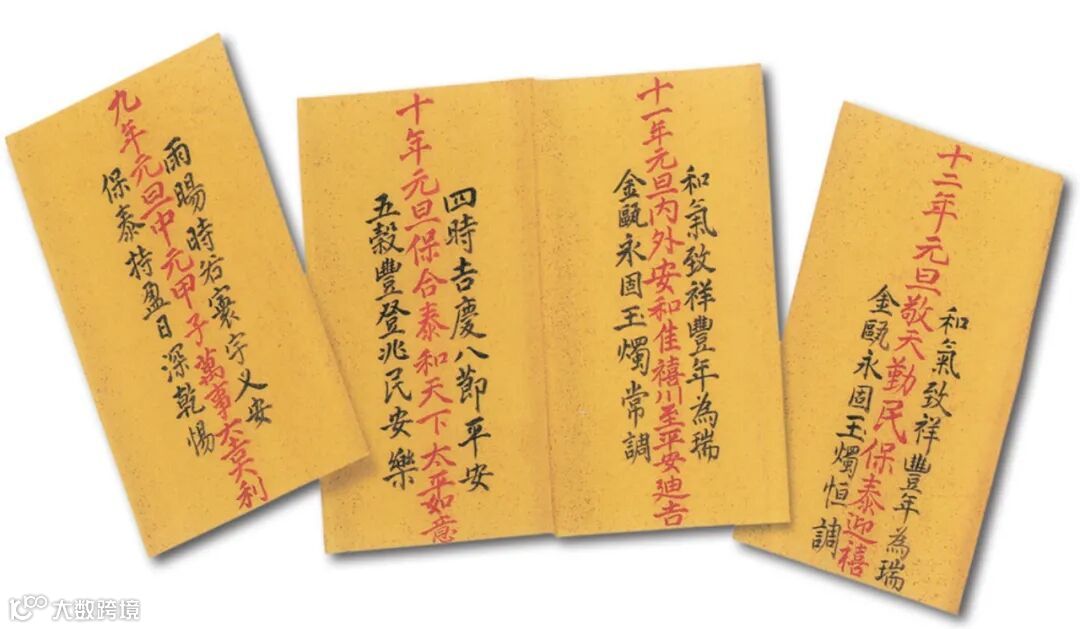 雨暘時若寰宇乂安
九年元旦中元甲子萬事大吉大利
保泰持盈日深乾惕
四時吉慶八節平安
十年元旦保合泰和天下太平如意
五穀豐登兆民安樂
和氣致祥豐年為瑞
十一年元旦內外安和佳禧川至平安迪吉
金甌永固玉燭常調
和氣致祥豐年為瑞
十二年元旦敬天勤民保泰迎禧
金甌永固玉燭恒調
大数跨境